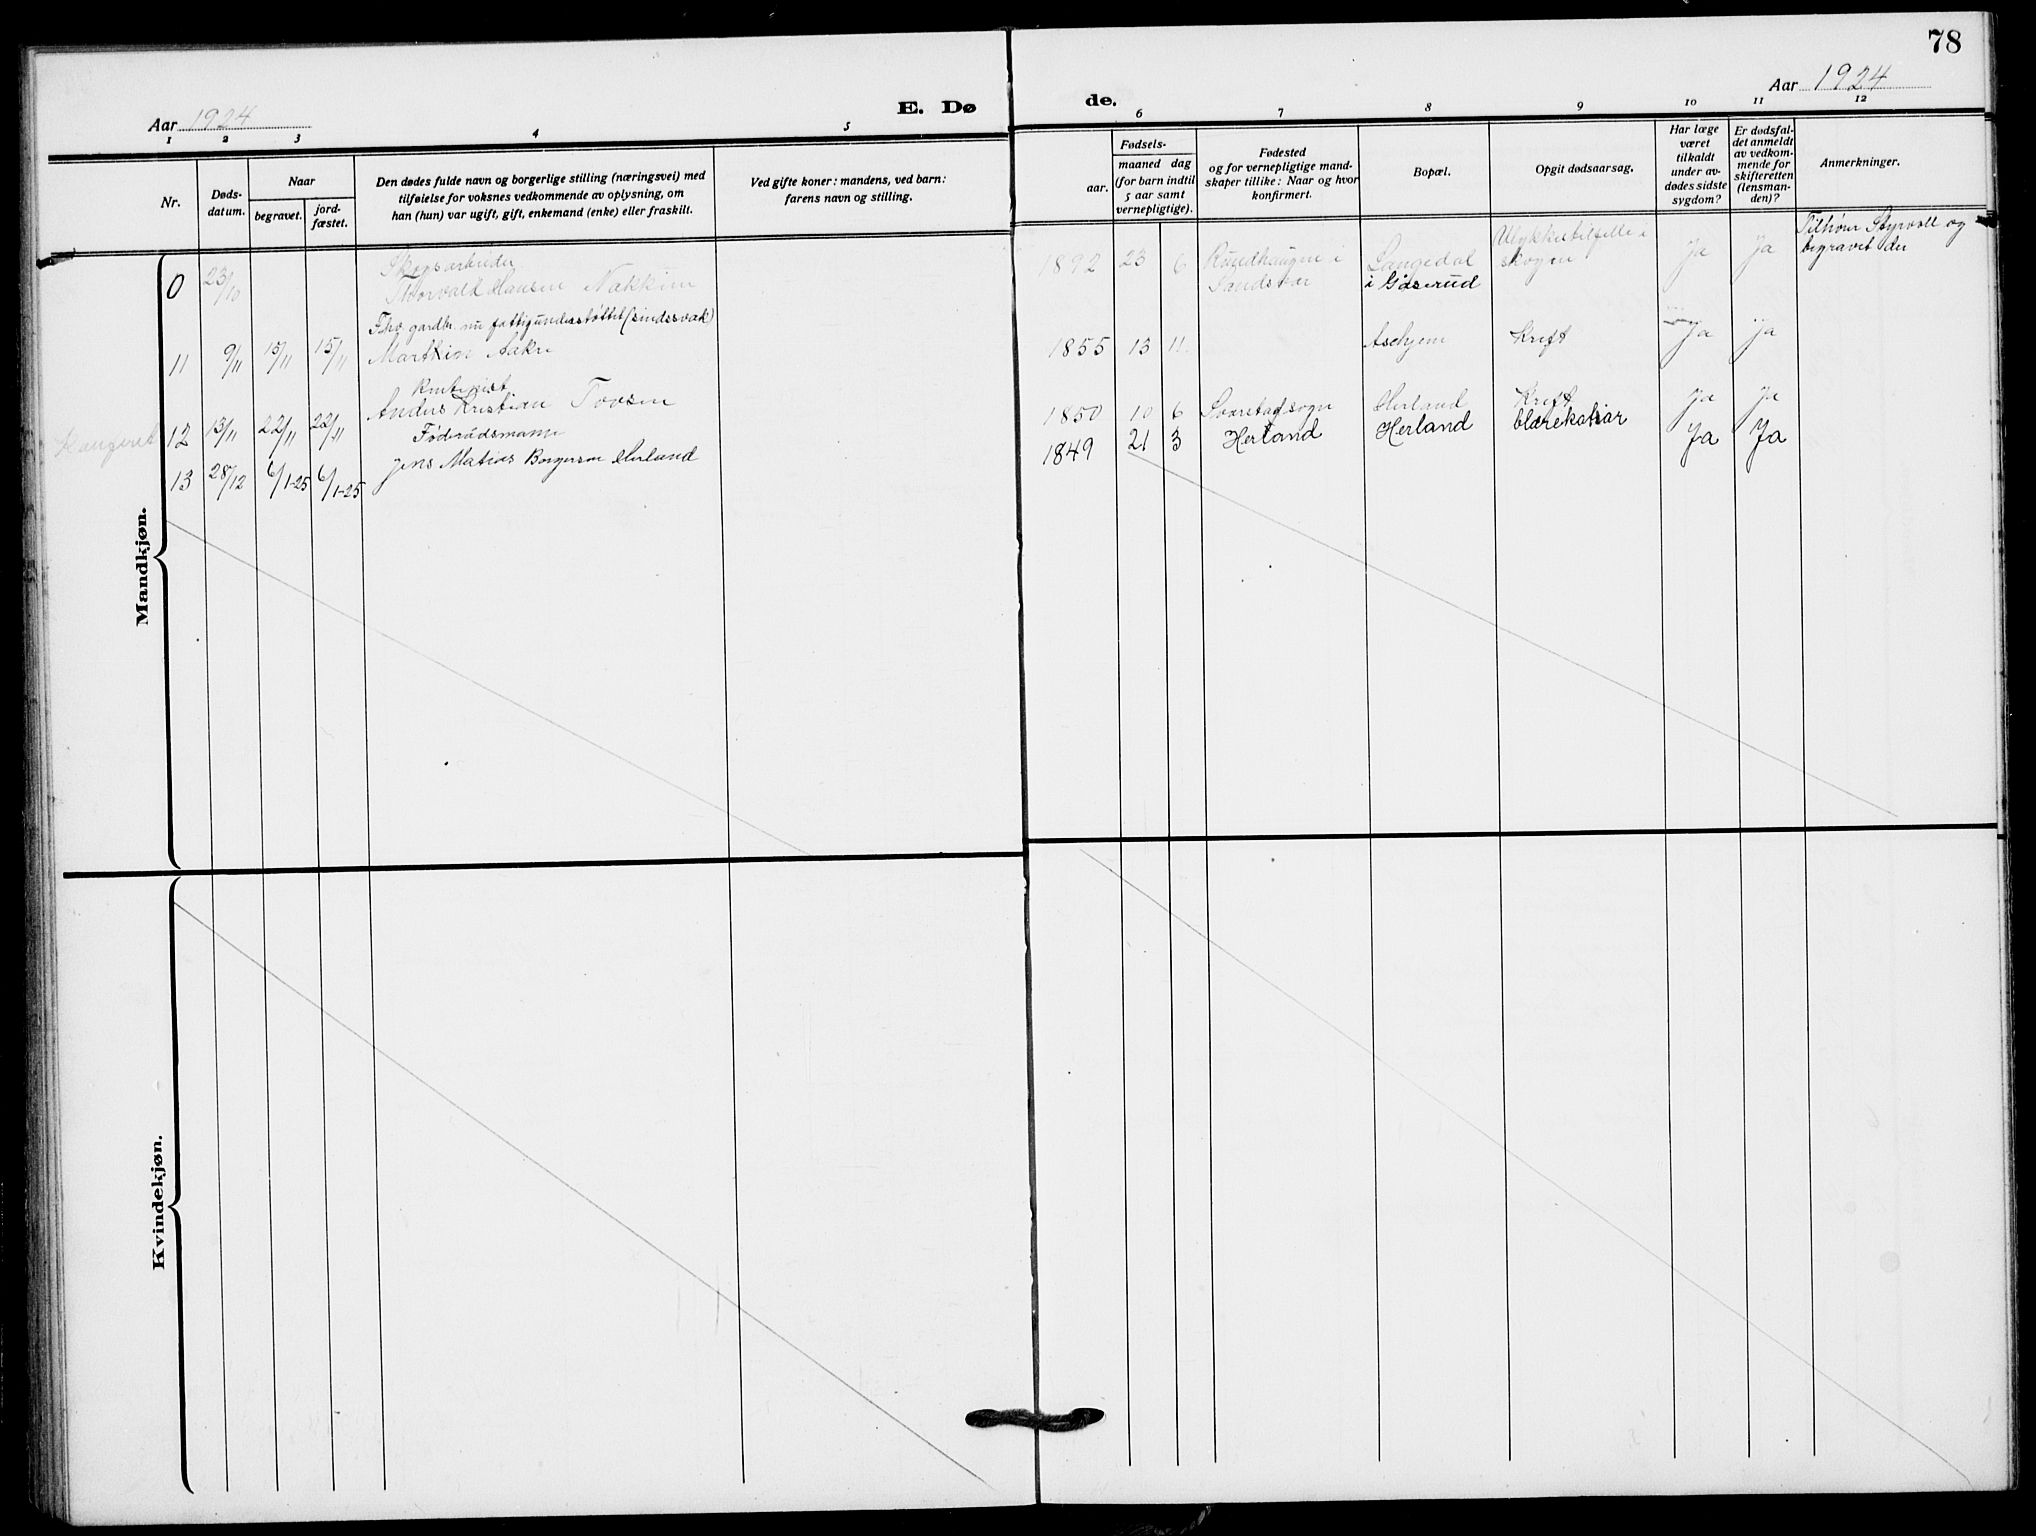 78
Aar 1924
E. Dø
de.
Aar 1924
1 2 3 4 5
6 7 8 9 10 11 12
Nr.
Døds-
datum.
Naar
begravet.
jord-
fæstet.
Den dødes fulde navn og borgerlige stilling (næringsvei) med
tilføielse for voksnes vedkommende av oplysning, om
han (hun) var ugift, gift, enkemand (enke) eller fraskilt.
Ved gifte koner: mandens, ved barn:
farens navn og stilling.
Fødsels-
aar.
maaned dag
(for barn indtil
5 aar samt
vernepligtige).
Fødested
og for vernepligtige mand-
skaper tillike: Naar og hvor
konfirmert.
Bopæl.
Opgit dødsaarsag.
Har læge
været
tilkaldt
under av-
dødes sidste
sygdom?
Er dødsfal-
det anmeldt
av vedkom-
mende for
skifteretten
(lensman-
den)?
Anmerkninger.
Mandkjøn.
0 23/10
Skogsarbeider
Thorvald Hansen Nakkim
1892 23 6
i
Sandsvær
Langedal
i Gåserud
Ulykkestilfelle i
skogen
Ja Ja
Tilhører Styrvoll og
begravet der
Fhv gardbr. nu fattigunderstøttet (sindssvak)
11 9/11 15/11 15/11 Martin Aakre
1855 13 11 Askjem Kreft Ja Ja
12 13/11 22/11 22/11
Anders Kristian Tovsen
1850 10 6 Svarstad sogn Herland Kreft Ja Ja
Føderådsmann
13 28/12 6/1-25 6/1-25 Jens Matias Borgersen Herland
1849 21 3 Herland Herland blærekatar Ja Ja
Kvindekjøn.